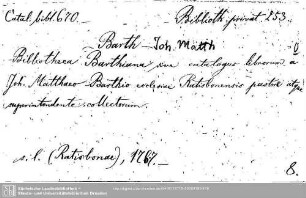 Catal. bibl. 670.
Biblioth. privat 253.
Barth Joh. Matth
Bibliotheca Barthiana sive catalogus librorum a
Joh. Matthaeo Barthio ecclesiae Ratisbonensis pastore atque
superintendente collectorum.
s. l. (Ratisbonae), 1767.
8.
Sächsische Landesbibliothek -